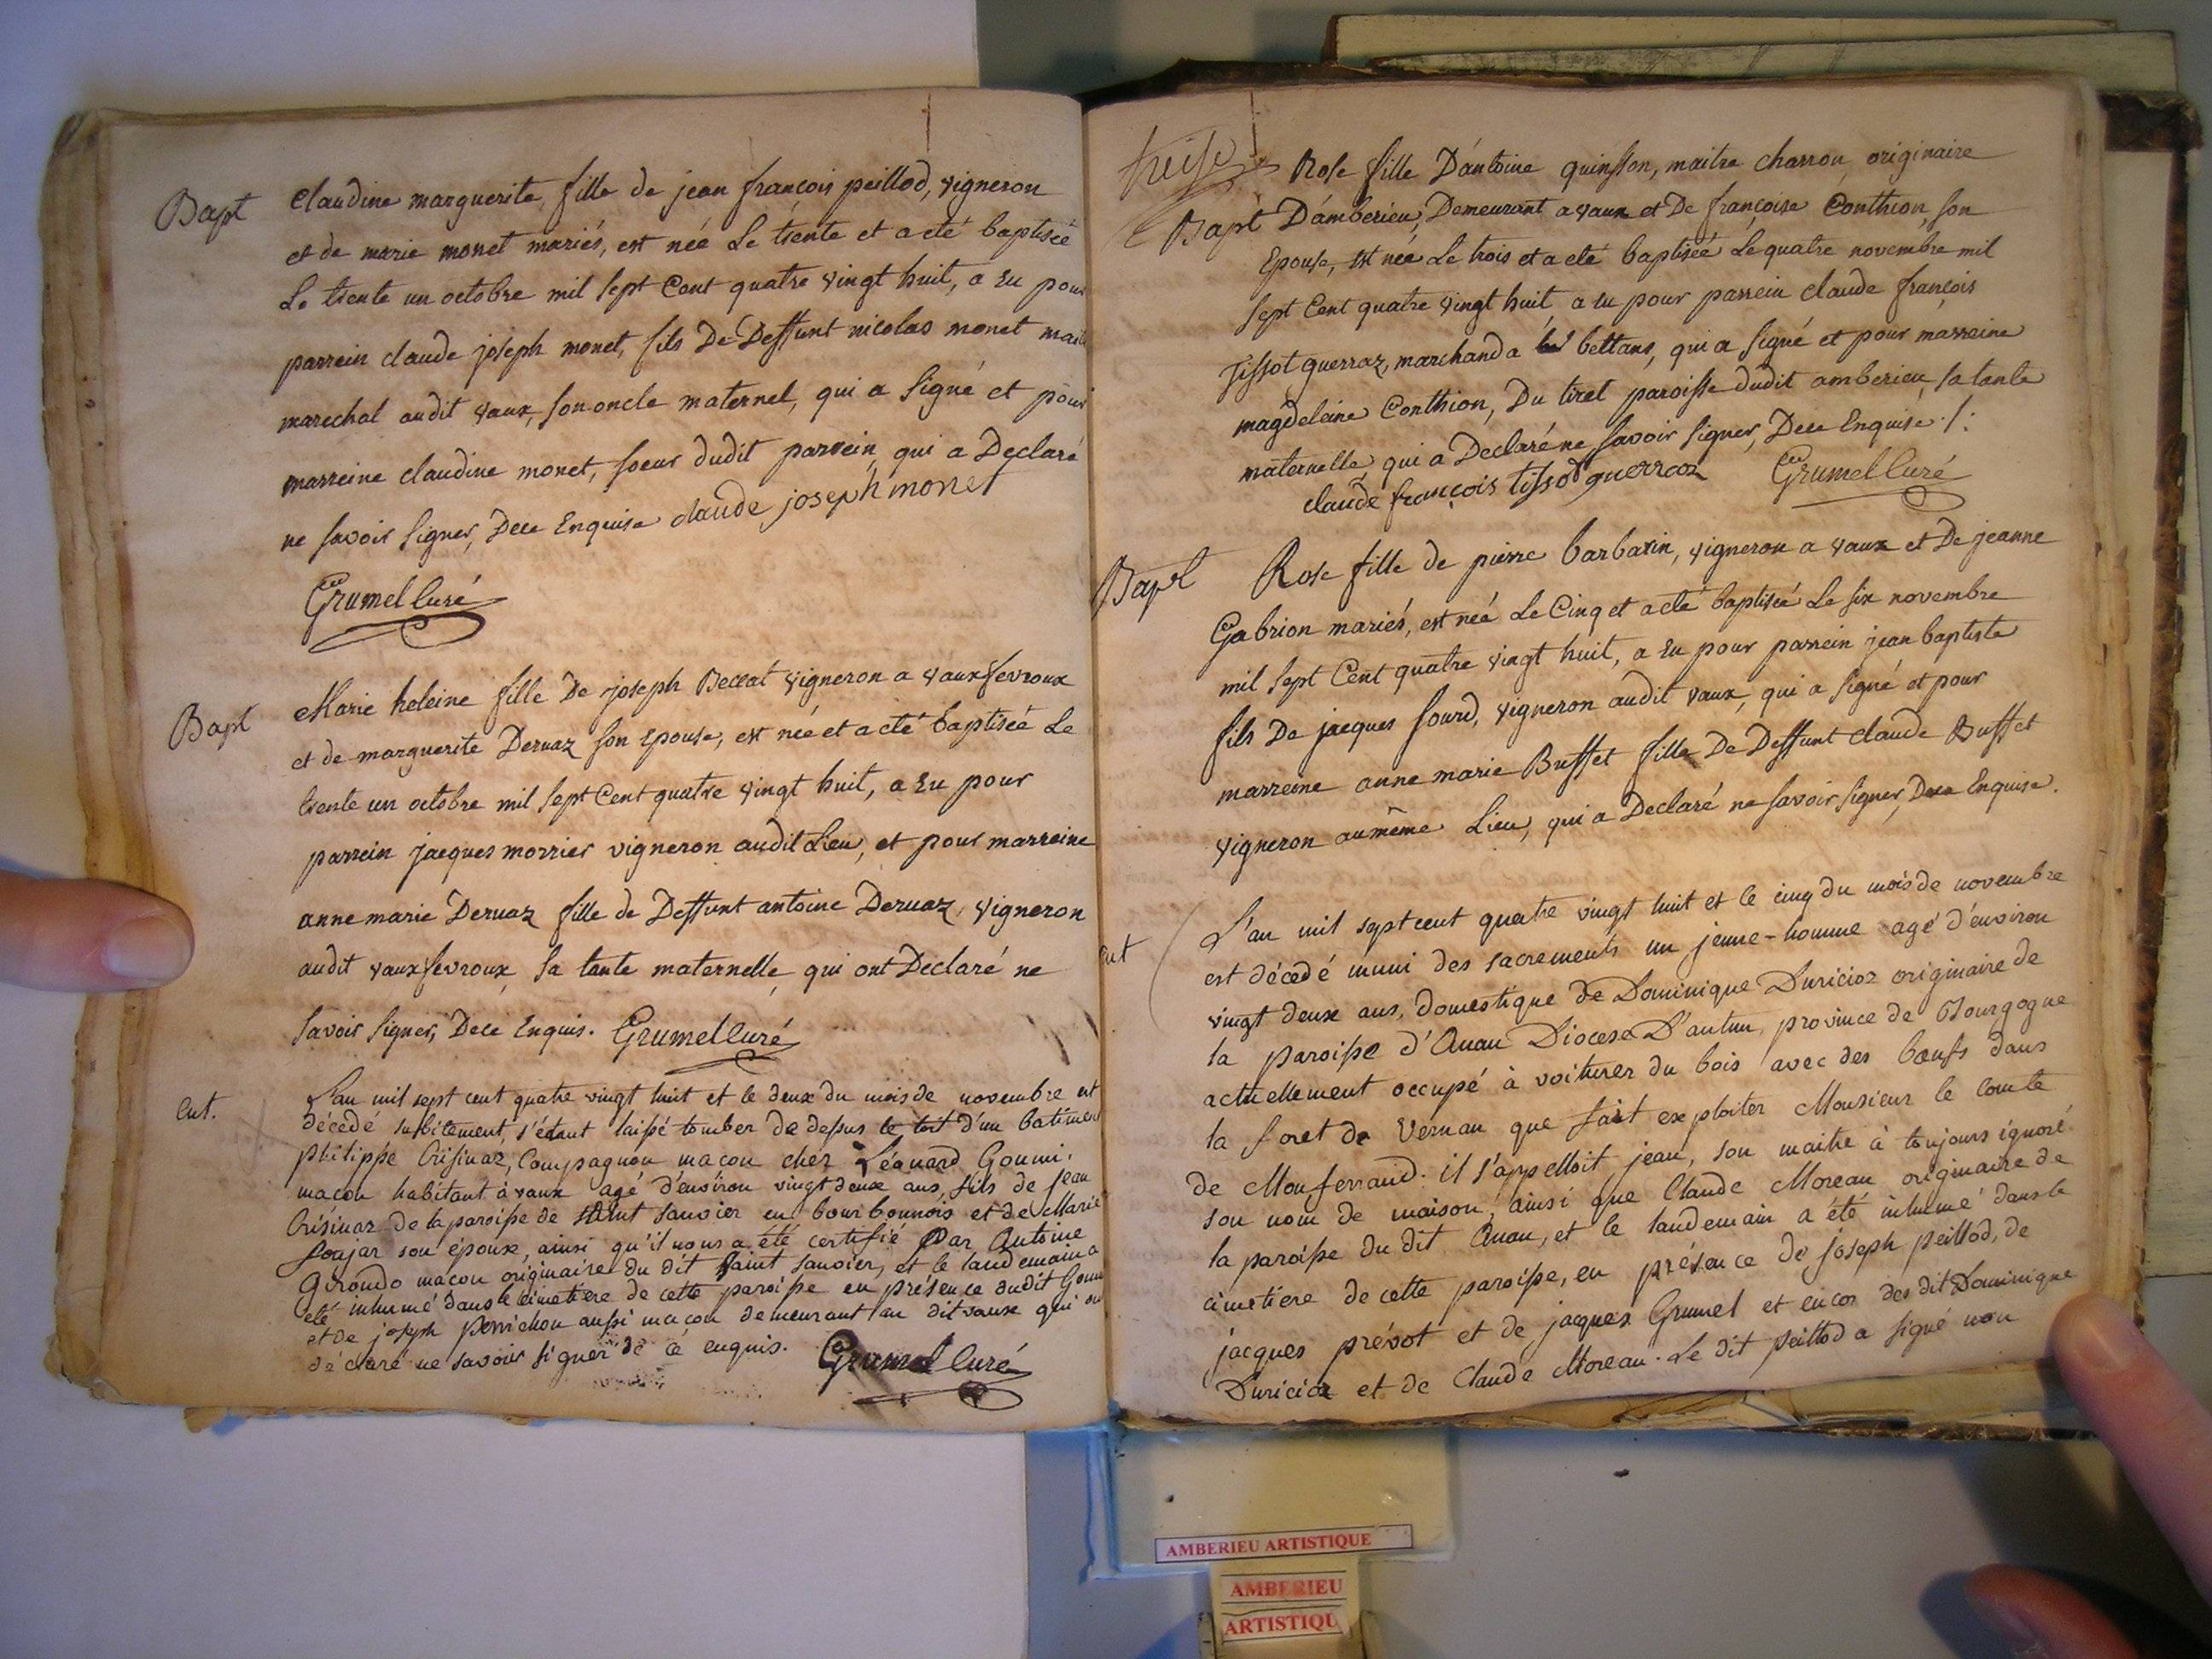 Bapt
Claudine marguerite, fille de jean françois peillod, vigneron
et de marie monet mariés, est née Le trente et a eté baptisée
Le trente un octobre mil sept Cent quatre vingt huit, a Eu pour
parrein claude joseph monet, fils De Deffunt nicolas monet
marechal audit vaux, son oncle maternel, qui a signé et pour
marreine claudine monet, soeur dudit parrein, qui a Declaré
ne savoir signer, Dece Enquise claude joseph monet
Grumel Curé
Bapt
Marie heleine fille De joseph Beccat vigneron a vauxfevroux
et de marguerite Deruaz son Epouse, est née et a eté baptisée Le
trente un octobre mil sept Cent quatre vingt huit, a Eu pour
parrein jacques morrier vigneron audit Lieu, et pour marreine
anne marie Deruaz fille de Deffunt antoine Deruaz, vigneron
audit vauxfevroux, sa tante maternelle, qui ont Declaré ne
savoir signer, Dece Enquis. Grumel Curé
Ent.
L'an mil sept cent quatre vingt huit et le deux du mois de novembre est
décédé subitement, s'étant laissé tomber de dessus le toit d'un batiment
philippe Crisinaz, Compagnon macon chez Léonard Goumi,
macon habitant à vaux agé d'environ vingt deux ans, fils de jean
Crisinaz de la paroisse de saint sauvier en bourbonnois et de Marie
soujar son épouse, ainsi qu'il nous a été certifié par Antoine
Girondo macon originaire du dit saint sauvier, et le landemain a
eté inhumé dans le cimetiere de cette paroisse en présence dudit
et de joseph perrichon aussi macon demeurant au dit vaux qui ont
déclaré ne savoir signer de ce enquis. Grumel Curé
treise
Bapt
Rose fille D'antoine quinsson, maitre charron originaire
D'amberieu, Demeurant a vaux et De françoise Conthion, son
Epouse, est née Le trois et a eté baptisée Le quatre novembre mil
sept Cent quatre vingt huit, a eu pour parrein claude françois
Tissot guerraz, marchand a bettans, qui a signé et pour marreine
magdeleine Conthion, Du tiret paroisse dudit amberieu, sa tante
maternelle, qui a Declaré ne savoir signer, Dece Enquise ./:
claude françois tissod guerraz Grumel Curé
Bapt
Rose fille de pierre barbarin, vigneron a vaux et De jeanne
Gabrion mariés, est née Le Cinq et a eté baptisée Le six novembre
mil sept Cent quatre vingt huit, a Eu pour parrein jean baptiste
fils De jacques sourd, vigneron audit vaux, qui a signé et pour
marreine anne marie Buffet fille De Deffunt claude Buffet
vigneron au même Lieu, qui a Declaré ne savoir signer, Dece Enquise.
Ent
L'an mil sept cent quatre vingt huit et le cinq du mois de novembre
est décedé muni des sacrements un jeune-homme agé d'environ
vingt deux ans, domestique de Dominique Duricioz originaire de
la paroisse d'Anau Diocese D'autun, province de Bourgogne
actuellement occupé à voiturer du bois avec des boeufs dans
la foret de Vernau que fait exploiter Monsieur le Comte
de Monferrand. il s'appelloit jean, son maitre à toujours ignoré
son nom de maison, ainsi que Claude Moreau originaire de
la paroisse du dit Anau, et le landemain a été inhumé dans le
cimetiere de cette paroisse, en présence de joseph peillod, de
jacques prévot et de jacques Grumel et encor des dit Dominique
Duricioz et de Claude Moreau. Le dit peillod a signé non
AMBERIEU ARTISTIQUE
AMBERIEU
ARTISTIQU